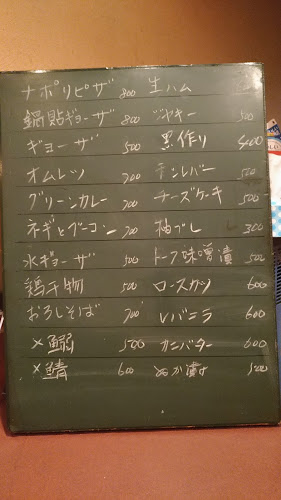 ナポリピザ 800
鍋貼ギョーザ 800
ギョーザ 500
オムレツ 700
グリーンカレー 700
ネギとベーコン 700
水ギョーザ 500
鶏干物 500
おろしそば 700
×鰯 500
×鯖 600
生ハム
ジャーキー 500
黒作り 400
チーズケーキ 500
柚ブレ 300
トーフ味噌漬 500
ロースカツ 600
レバニラ 600
カニバター 600
ぬか漬け 500